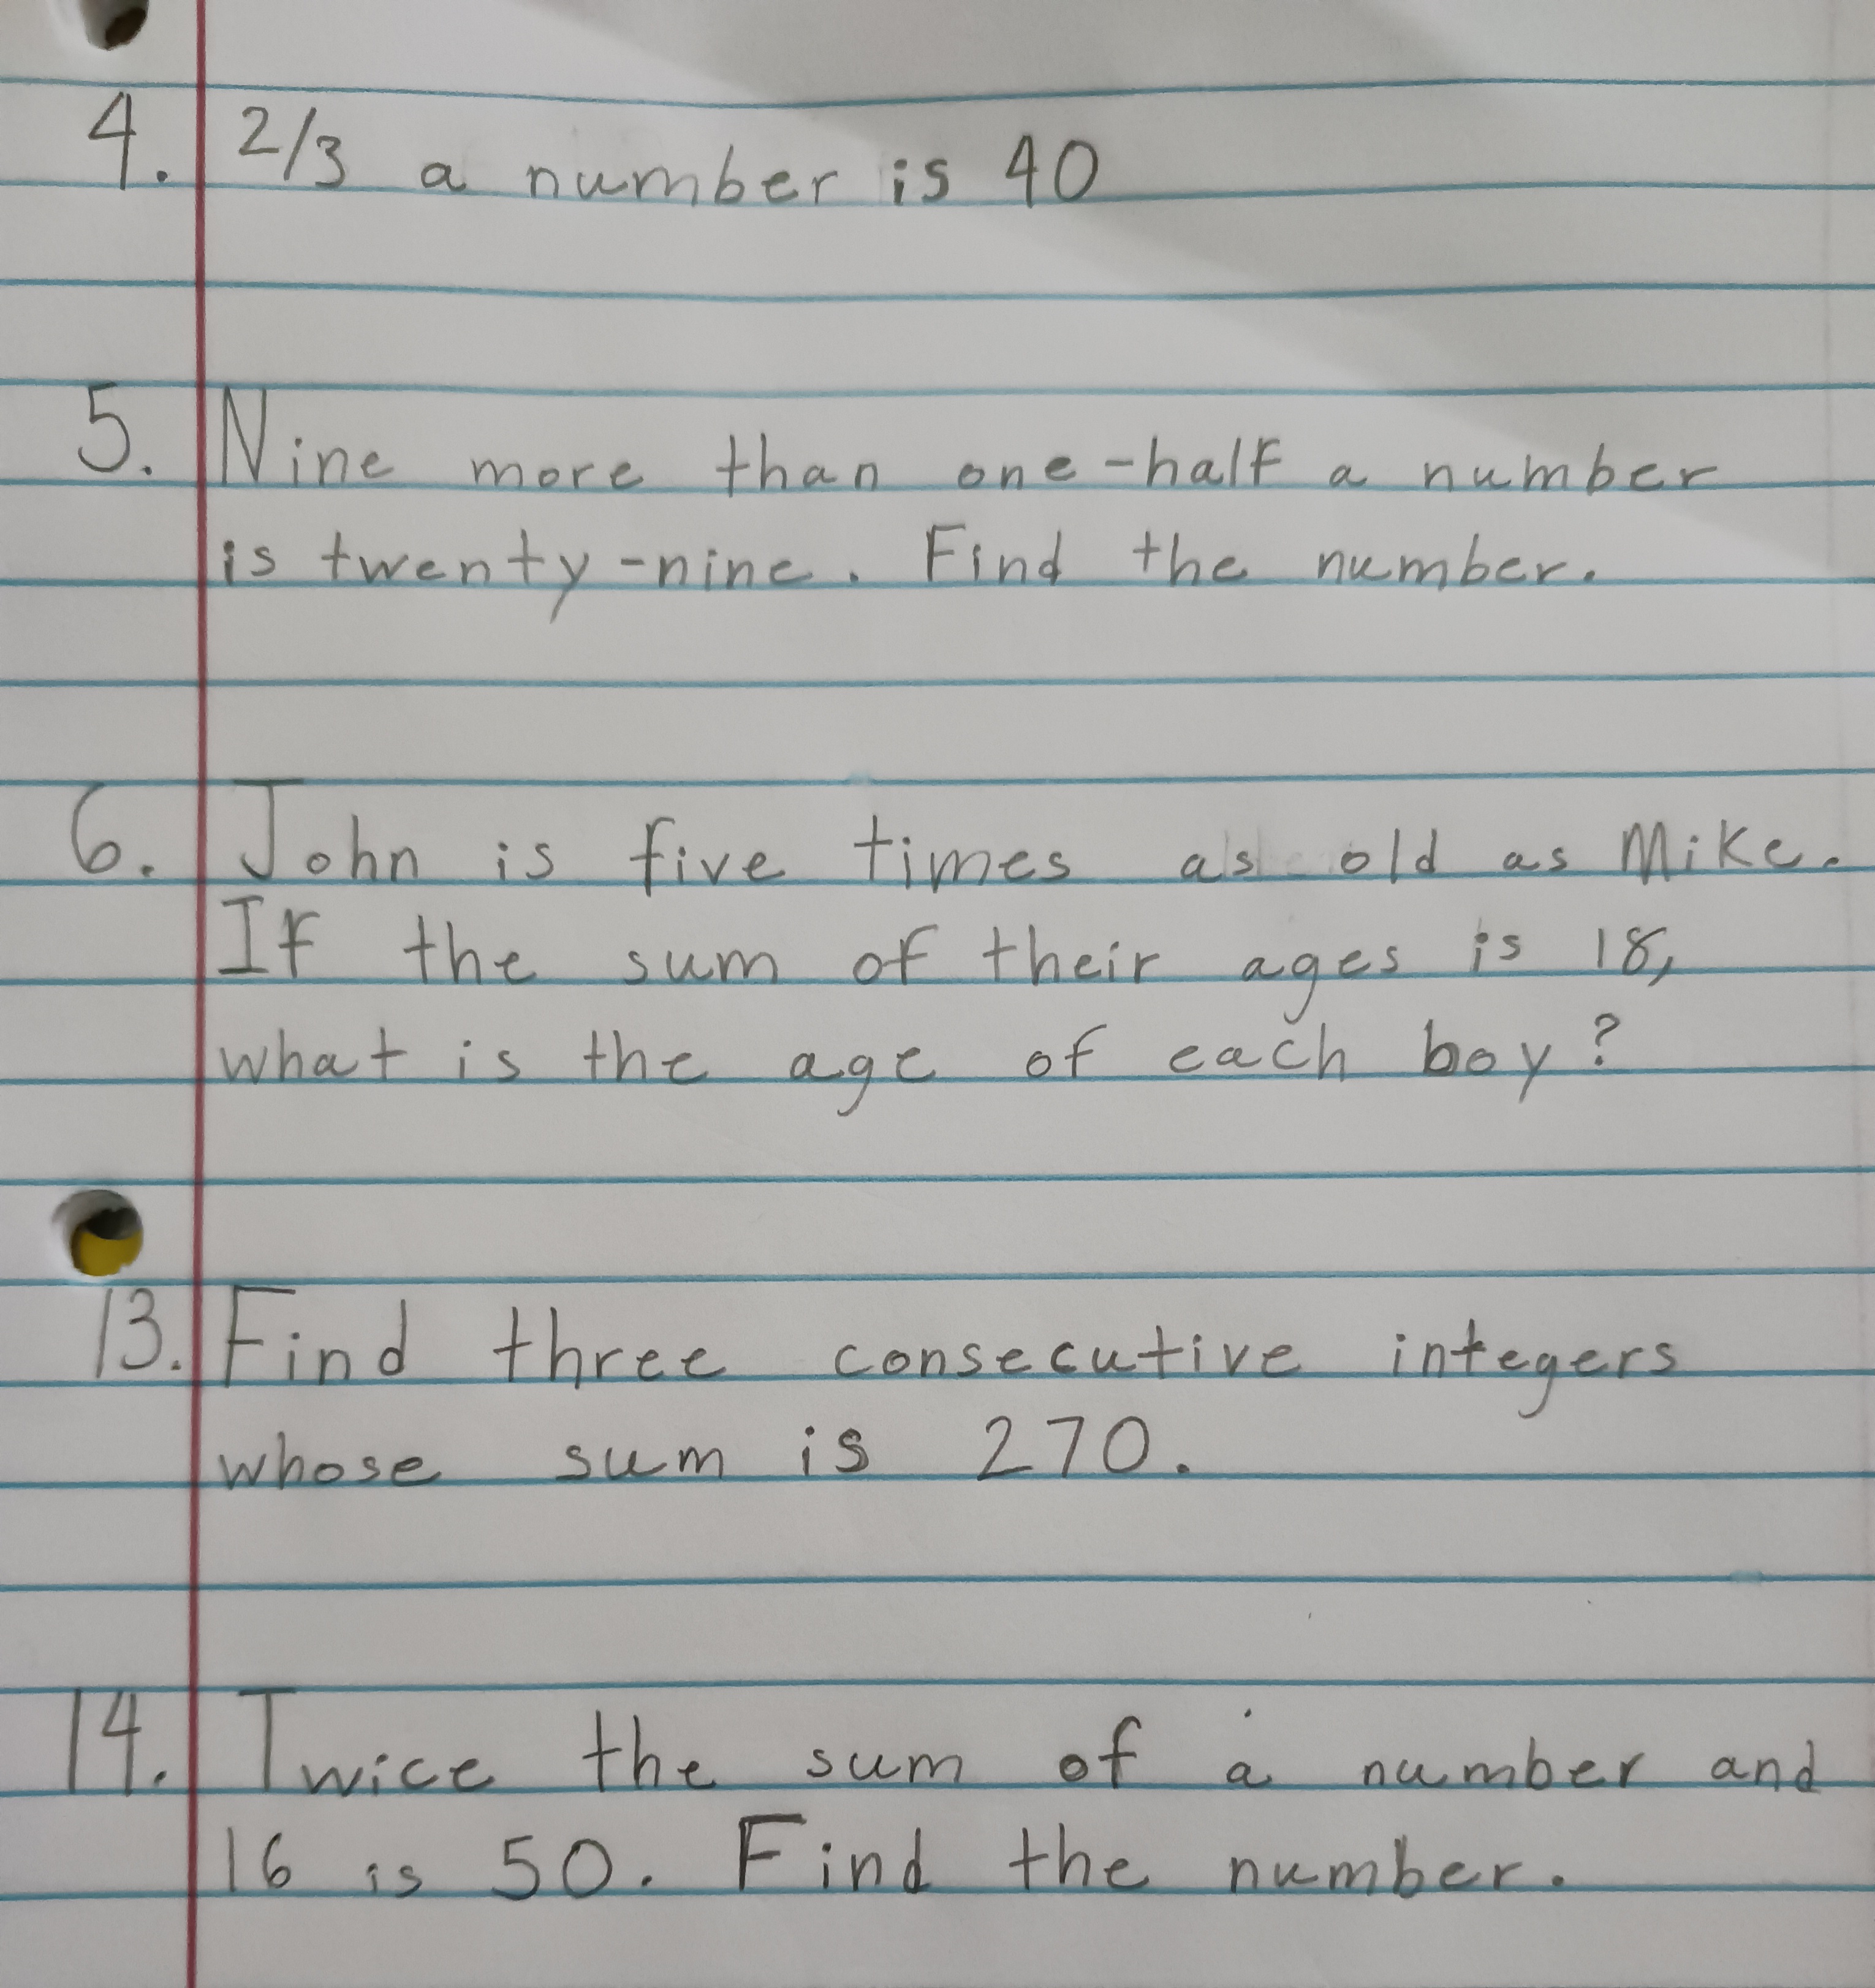 4. 2/3 a number is 40
5. Nine more than one-half a number
is twenty-nine. Find the number.
6. John is five times as old as Mike.
If the sum of their ages is 18,
what is the age of each boy?
13. Find three consecutive integers
whose sum is 270.
14. Twice the sum of a number and
16 is 50. Find the number.